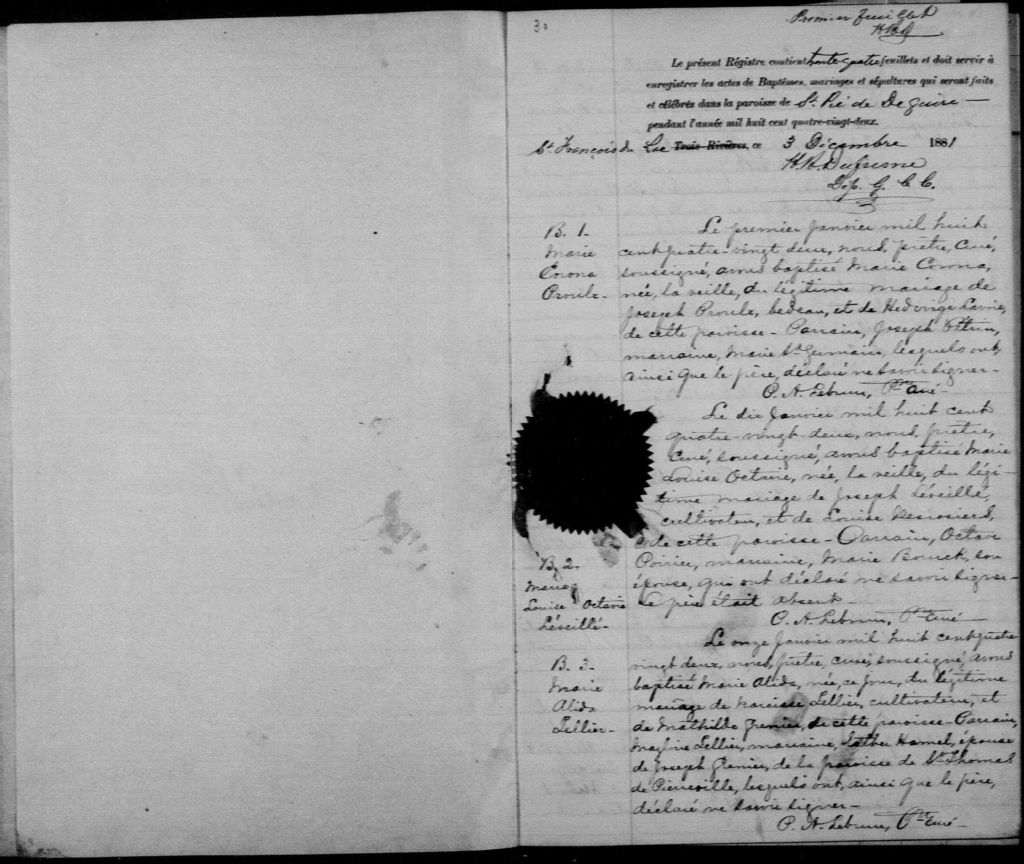 30
Premier feuillet
Le présent Régistre contient trente quatre feuillets et doit servir à
enregistrer les actes de Baptêmes, mariages et sépultures qui seront faits
et célébrés dans la paroisse de St. Pie de Deguire —
pendant l'année mil huit cent quatre-vingt-deux.
St François du Lac Trois-Rivières, ce 3 Décembre 1881
H. N. Dufresne
Dép. G. C. C.
B. 1-
Marie
Corona
Proulx-
Le premier Janvier mil huit
cent quatre-vingt deux, nous, prêtre, curé,
soussigné, avons baptisé Marie Corona,
née, la veille, du légitime mariage de
Joseph Proulx, bedeau, et de Hedwige
de cette paroisse - Parrain, Joseph
marraine, Marie St Germain, lesquels ont,
ainsi que le père, déclaré ne savoir signer-
P. A. Lebrun, Ptre Curé-
B. 2-
Marie
Louise Octavie
Léveillé-
Le dix Janvier mil huit cent
quatre-vingt-deux, nous, prêtre,
curé, soussigné, avons baptisé Marie
Louise Octavie, née, la veille, du légi-
time mariage de Joseph Léveillé,
cultivateur, et de Louise Desrosiers,
de cette paroisse - Parrain, Octave
Poirier, marraine, Marie son
épouse, qui ont déclaré ne savoir signer-
Le père était absent-
P. A. Lebrun, Ptre Curé-
B. 3-
Marie
Alida
Lellier-
Le onze Janvier mil huit cent quatre
vingt deux, nous, prêtre, curé, soussigné, avons
baptisé Marie Alida, née, ce jour, du légitime
mariage de Narcisse Lellier, cultivateur, et
de Mathilde Grenier, de cette paroisse - Parrain,
Lellier, marraine, Esther Hamel, épouse
de Joseph Grenier, de la paroisse de St Thomas
de Pierreville, lesquels ont, ainsi que le père,
déclaré ne savoir signer-
P. A. Lebrun, Ptre Curé-